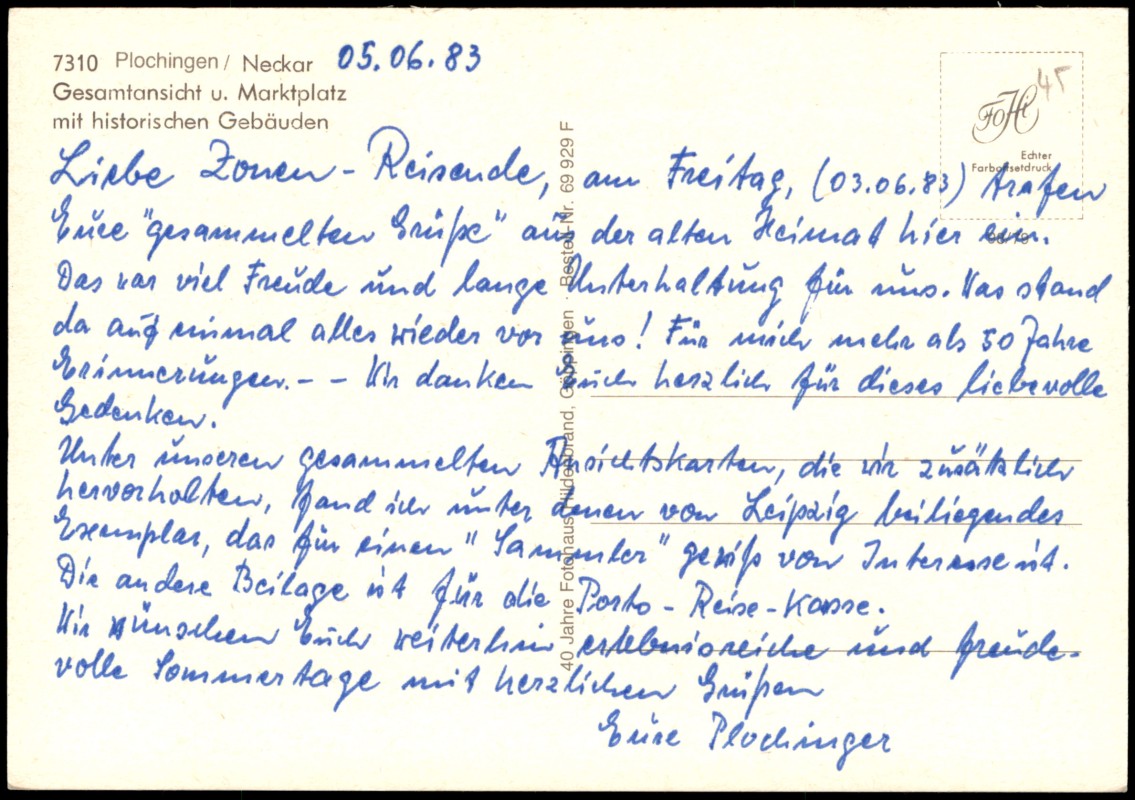 7310 Plochingen / Neckar 05.06.83
Gesamtansicht u. Marktplatz
mit historischen Gebäuden
FoHi
45
Echter
Farboffsetdruck
Liebe Zonen-Reisende, am Freitag, (03.06.83) trafen
Eure "gesammelten Grüße" aus der alten Heimat hier ein.
Das war viel Freude und lange Unterhaltung für uns. Was stand
da auf einmal alles wieder vor uns! Für mich mehr als 50 Jahre
Erinnerungen. - - Wir danken Euch herzlich für dieses liebevolle
Gedenken.
Unter unseren gesammelten Ansichtskarten, die wir zusätzlich
hervorholten, fand ich unter denen von Leipzig beiliegendes
Exemplar, das für einen "Sammler" gewiß von Interesse ist.
Die andere Beilage ist für die Porto-Reise-Kasse.
Wir wünschen Euch weiterhin erlebnisreiche und freude-
volle Sommertage mit herzlichen Grüßen
Eure Plochinger
40 Jahre Fotohaus Hildenbrand, Göppingen · Bestell-Nr. 69 929 F